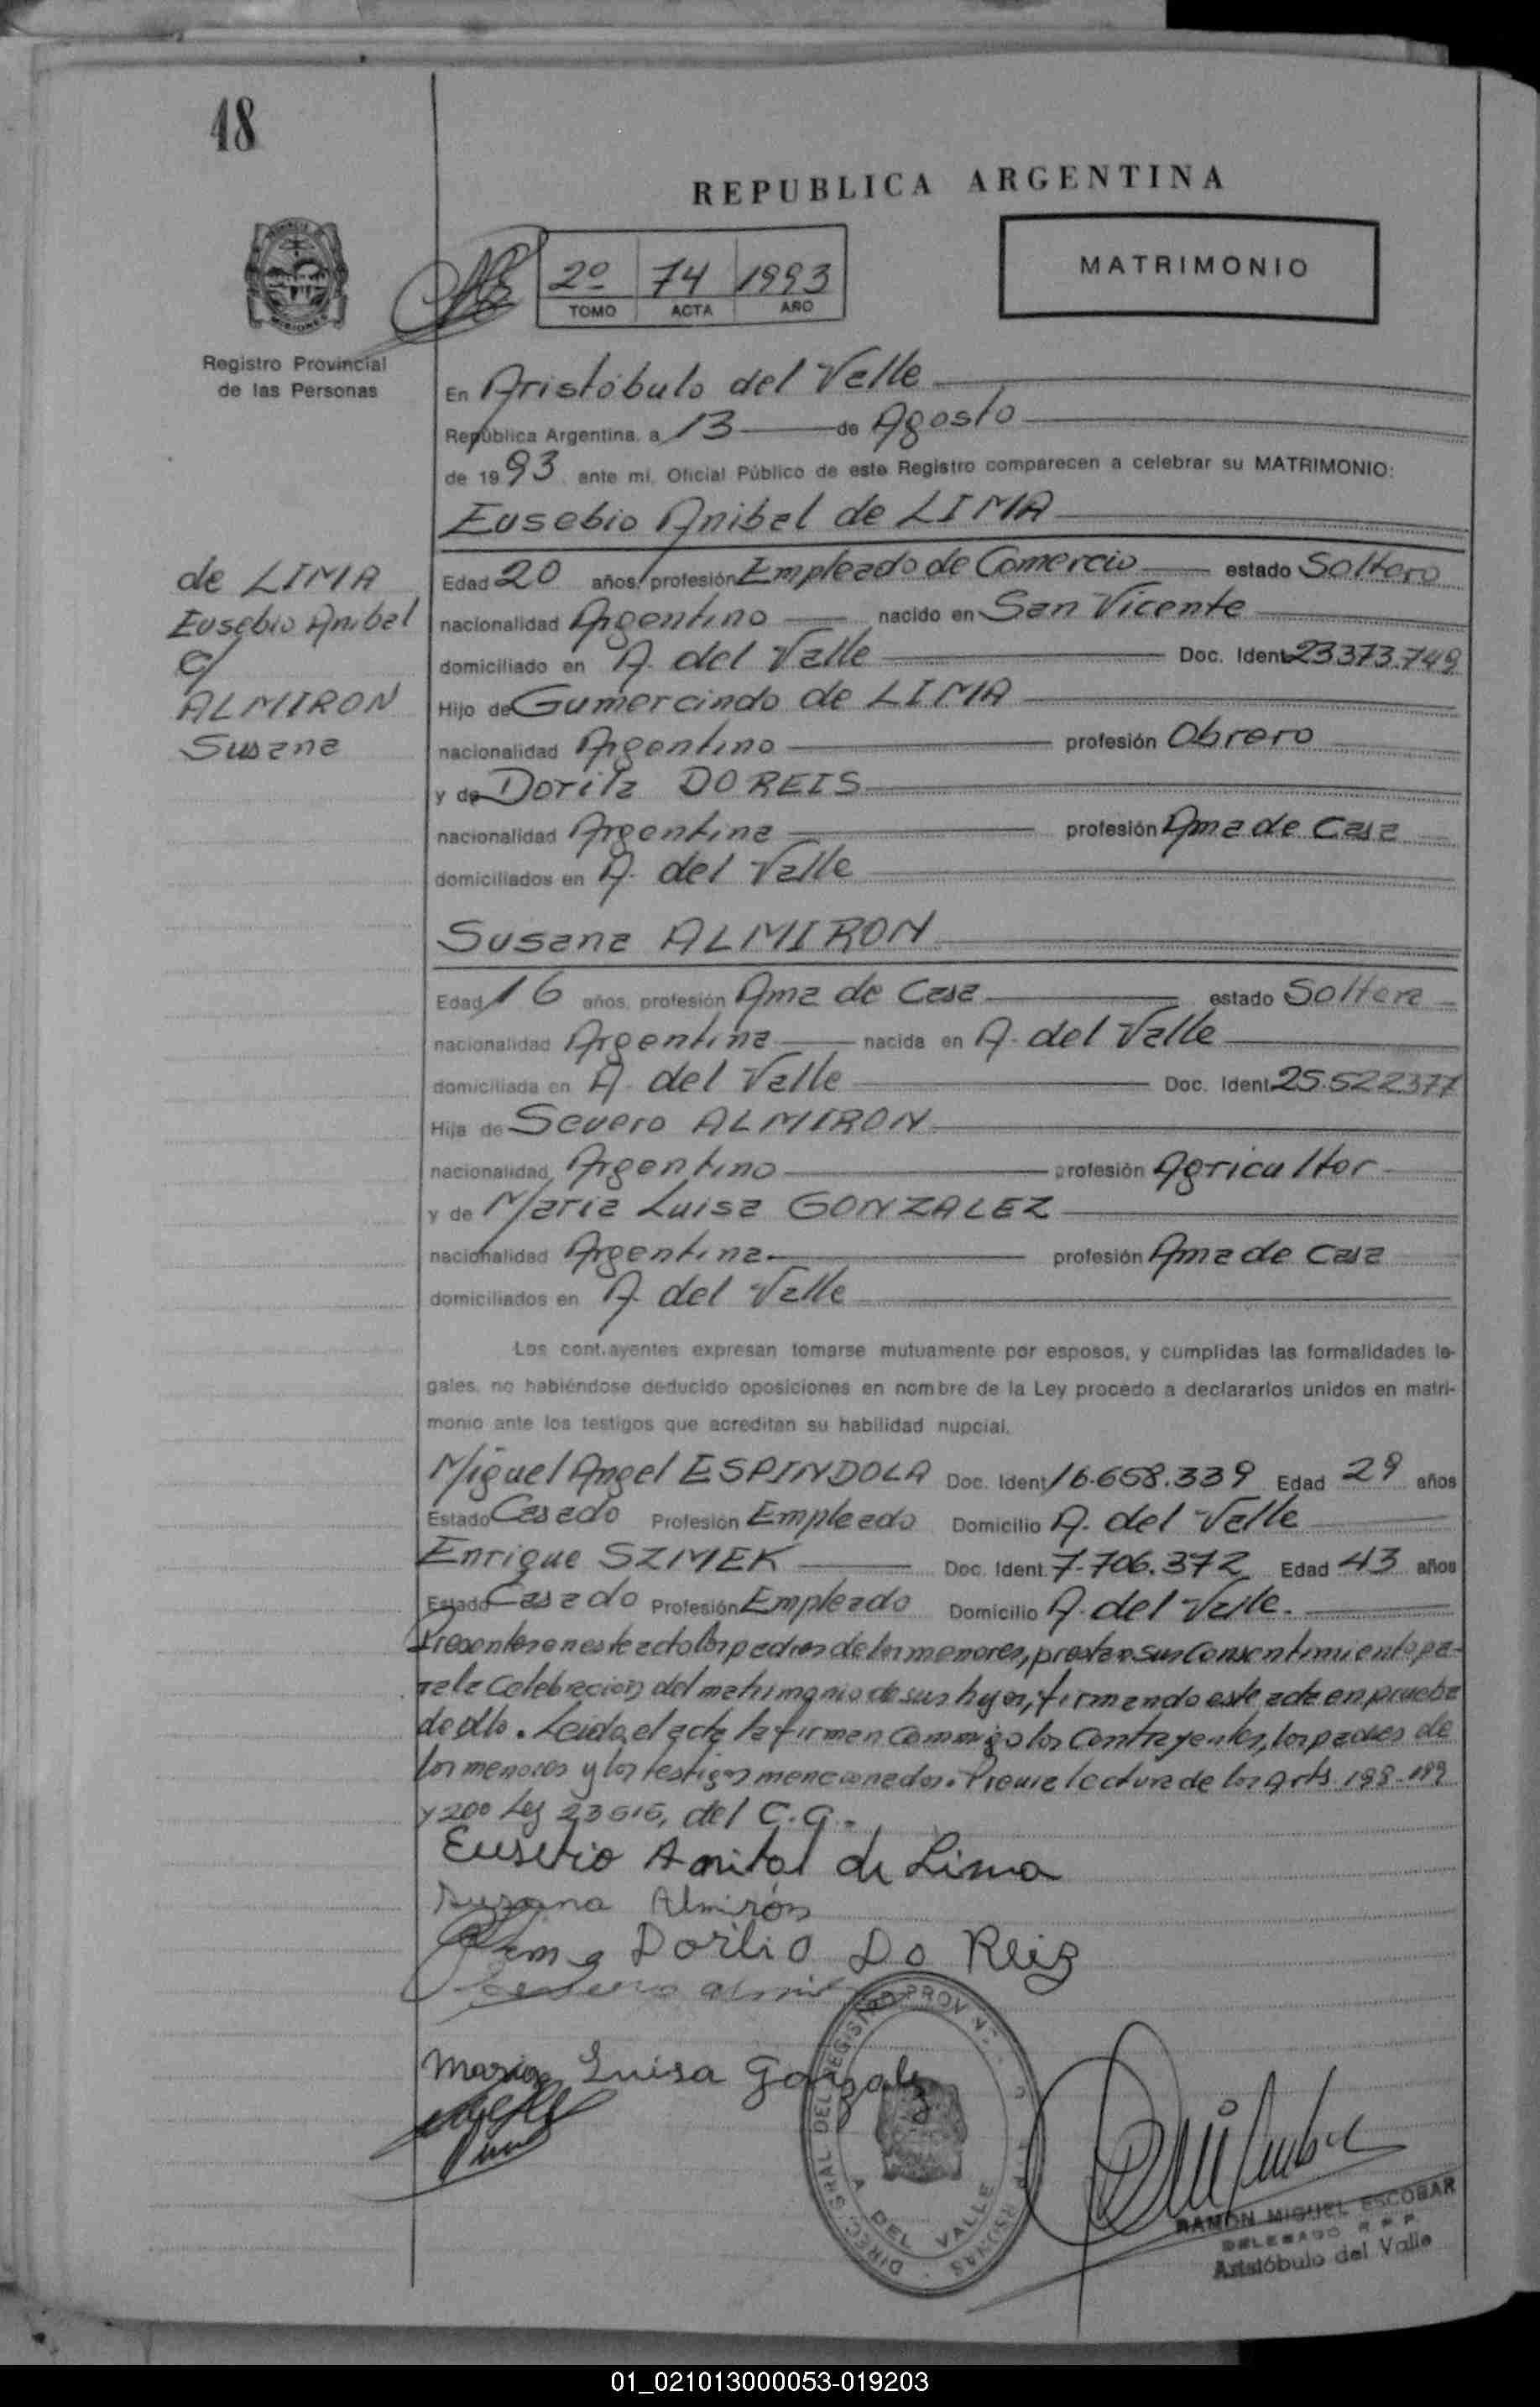 18
REPUBLICA ARGENTINA
MATRIMONIO
2º 74 1993
TOMO ACTA AÑO
Registro Provincial
de las Personas
En Aristóbulo del Valle
República Argentina, a 13 de Agosto
de 1993 ante mi, Oficial Público de este Registro comparecen a celebrar su MATRIMONIO:
Eusebio Anibal de LIMA
de LIMA
Eusebio Anibal
c/
ALMIRON
Susana
Edad 20 años, profesión Empleado de Comercio estado Soltero
nacionalidad Argentino nacido en San Vicente
domiciliado en A. del Valle Doc. Ident. 23373.749
Hijo de Gumercindo de LIMA
nacionalidad Argentino profesión Obrero
y de Dorila DOREIS
nacionalidad Argentina profesión Ama de Casa
domiciliados en A. del Valle
Susana ALMIRON
Edad 16 años, profesión Ama de Casa estado Soltera
nacionalidad Argentina nacida en A. del Valle
domiciliada en A. del Valle Doc. Ident. 25.522377
Hija de Severo ALMIRON
nacionalidad Argentino profesión Agricultor
y de Maria Luisa GONZALEZ
nacionalidad Argentina profesión Ama de Casa
domiciliados en A. del Valle
Los cont.ayentes expresan tomarse mutuamente por esposos, y cumplidas las formalidades le-
gales, no habiéndose deducido oposiciones en nombre de la Ley procedo a declararlos unidos en matri-
monio ante los testigos que acreditan su habilidad nupcial.
Miguel Angel ESPINDOLA Doc. Ident. 16.658.339 Edad 29 años
Estado Casado Profesión Empleado Domicilio A. del Valle
Enrique SZMEK Doc. Ident. 7.706.372 Edad 43 años
Estado Casado Profesión Empleado Domicilio A. del Valle.
Presentes en este acto los padres de los menores, prestan sus Consentimiento pa-
ra la Celebración del matrimonio de sus hijos, firmando este acta en prueba
de ello. Leida el acta la firman Conmigo los Contrayentes, los padres de
los menores y los testigos mencionados. Previa lectura de los Arts. 198-199
y 200 Ley 23515, del C.C.-
Eusebio Anibal de Lima
Susana Almirón
Dorilia Do Reis
Maria Luisa Gonzalez
DIREC. GRAL DEL REGISTRO PROVINC.
A. DEL VALLE
RAMON MIGUEL ESCOBAR
DELEGADO R.P.P.
Aristóbulo del Valle
01_021013000053-019203